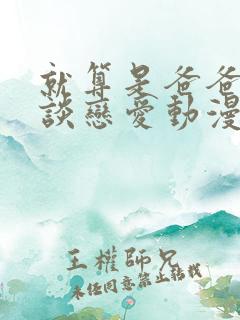 就算是爸爸
談戀愛動漫
王權師兄
未經同意禁止轉載